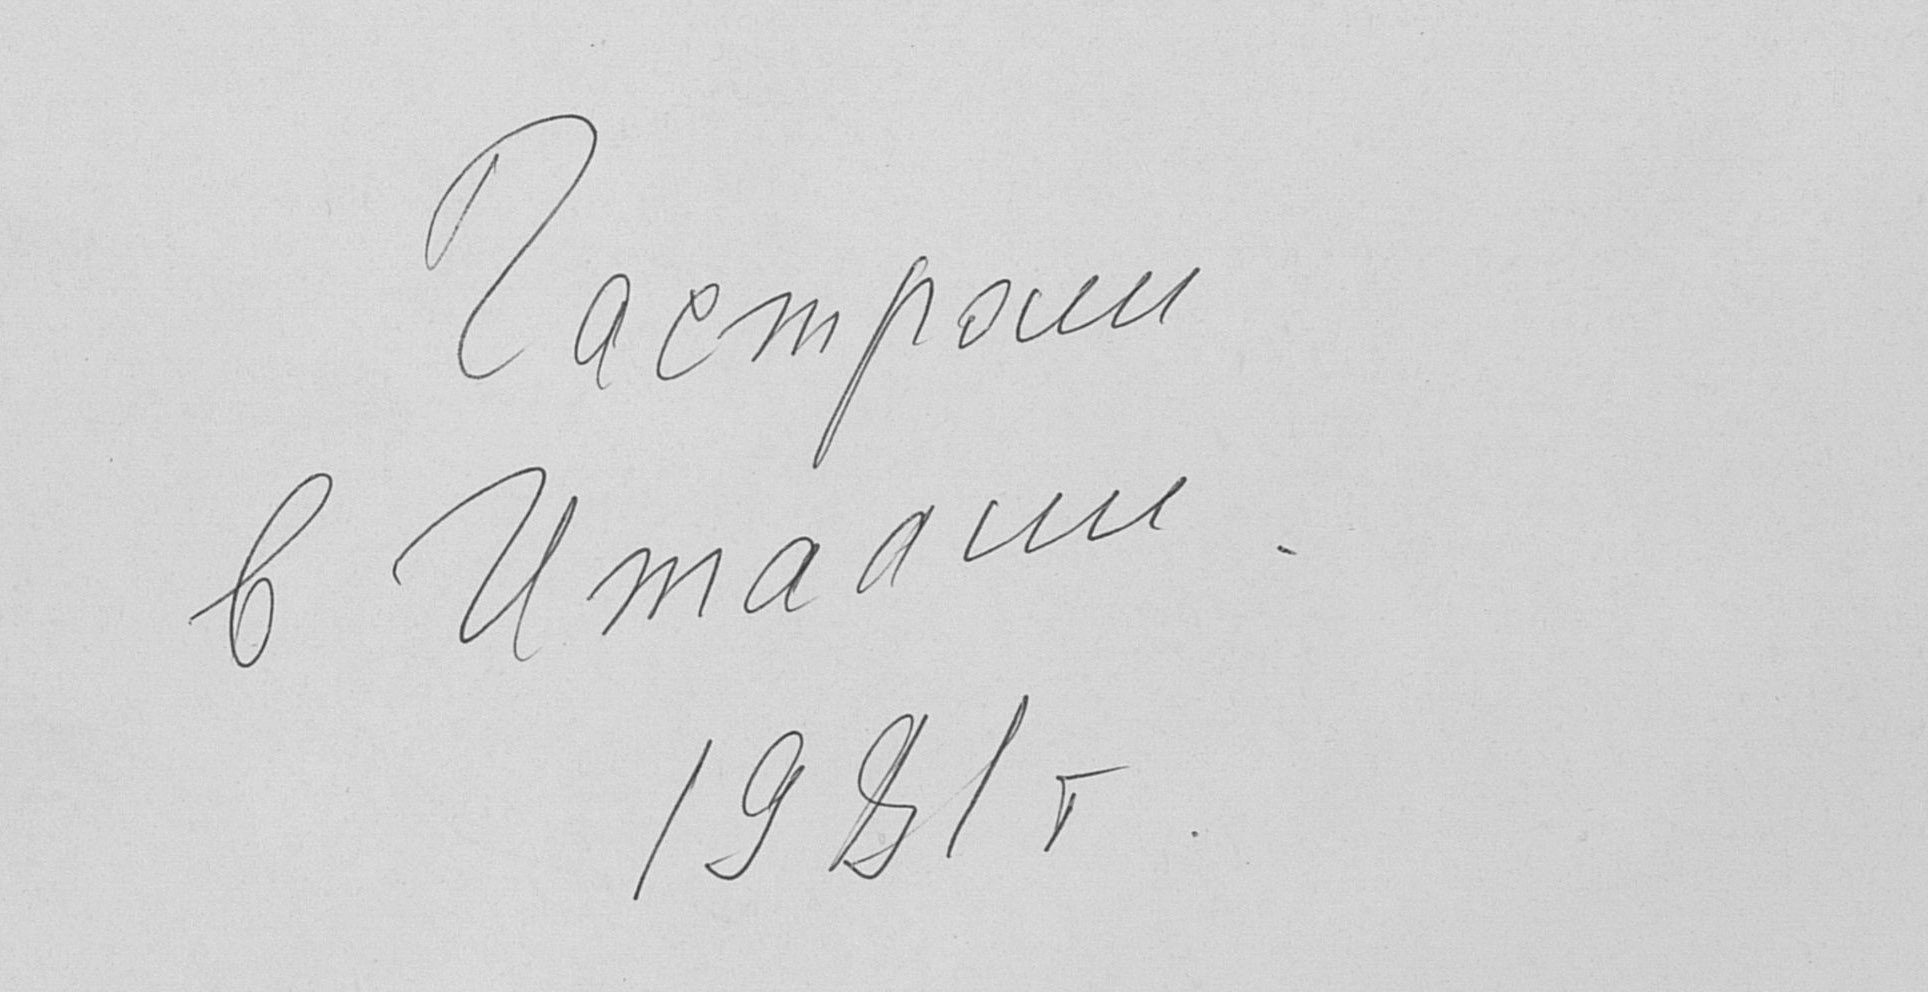 Гастроли
в Италии.
1981 г.